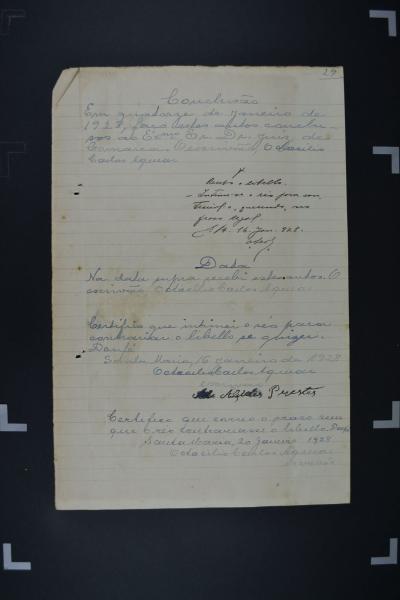 29
Conclusão
Em quatorze de Janeiro de
1928, faço estes autos conclu-
sos ao Exmo Sr. Dr. Juiz de
Comarca. O escrivão, Otacilio
Carlos Aguiar
Recebo o libello.
Intime-se o réo para con-
querendo, no
prazo legal
14 Jan. 928.
Data
Na data supra recebi estes autos. O
escrivão Otacilio Carlos Aguiar
Certifico que intimei o réo para
contrariar o libello se quizer.
Doufé
Santa Maria, 16 Janeiro de 1928
Otacilio Carlos Aguiar
escrivão
Alcides Prestes
Certifico que correu o praso sem
que o réo contrariasse o libello. Doufé
Santa Maria, 20 Janeiro 1928
Otacilio Carlos Aguiar
escrivão